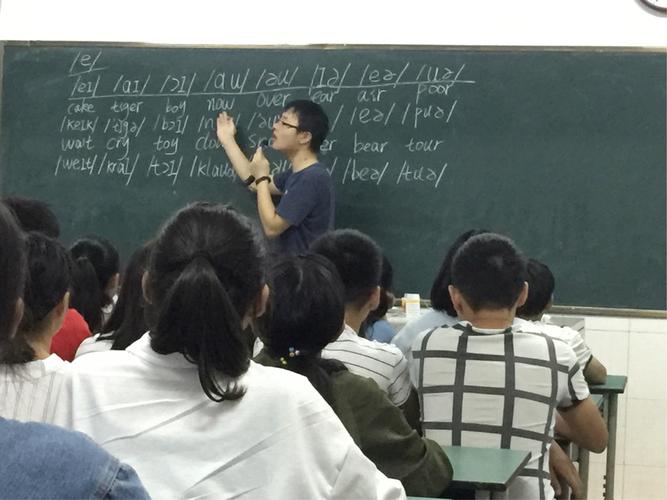 /e/
/eɪ/ /aɪ/ /ɔɪ/ /au/ /əu/ /ɪə/ /eə/ /uə/
cake tiger boy now over ear air poor
/keɪk/ /bɔɪ/ /eə/ /puə/
wait cry toy bear tour
/weɪt/ /kraɪ/ /tɔɪ/ /beə/ /tuə/